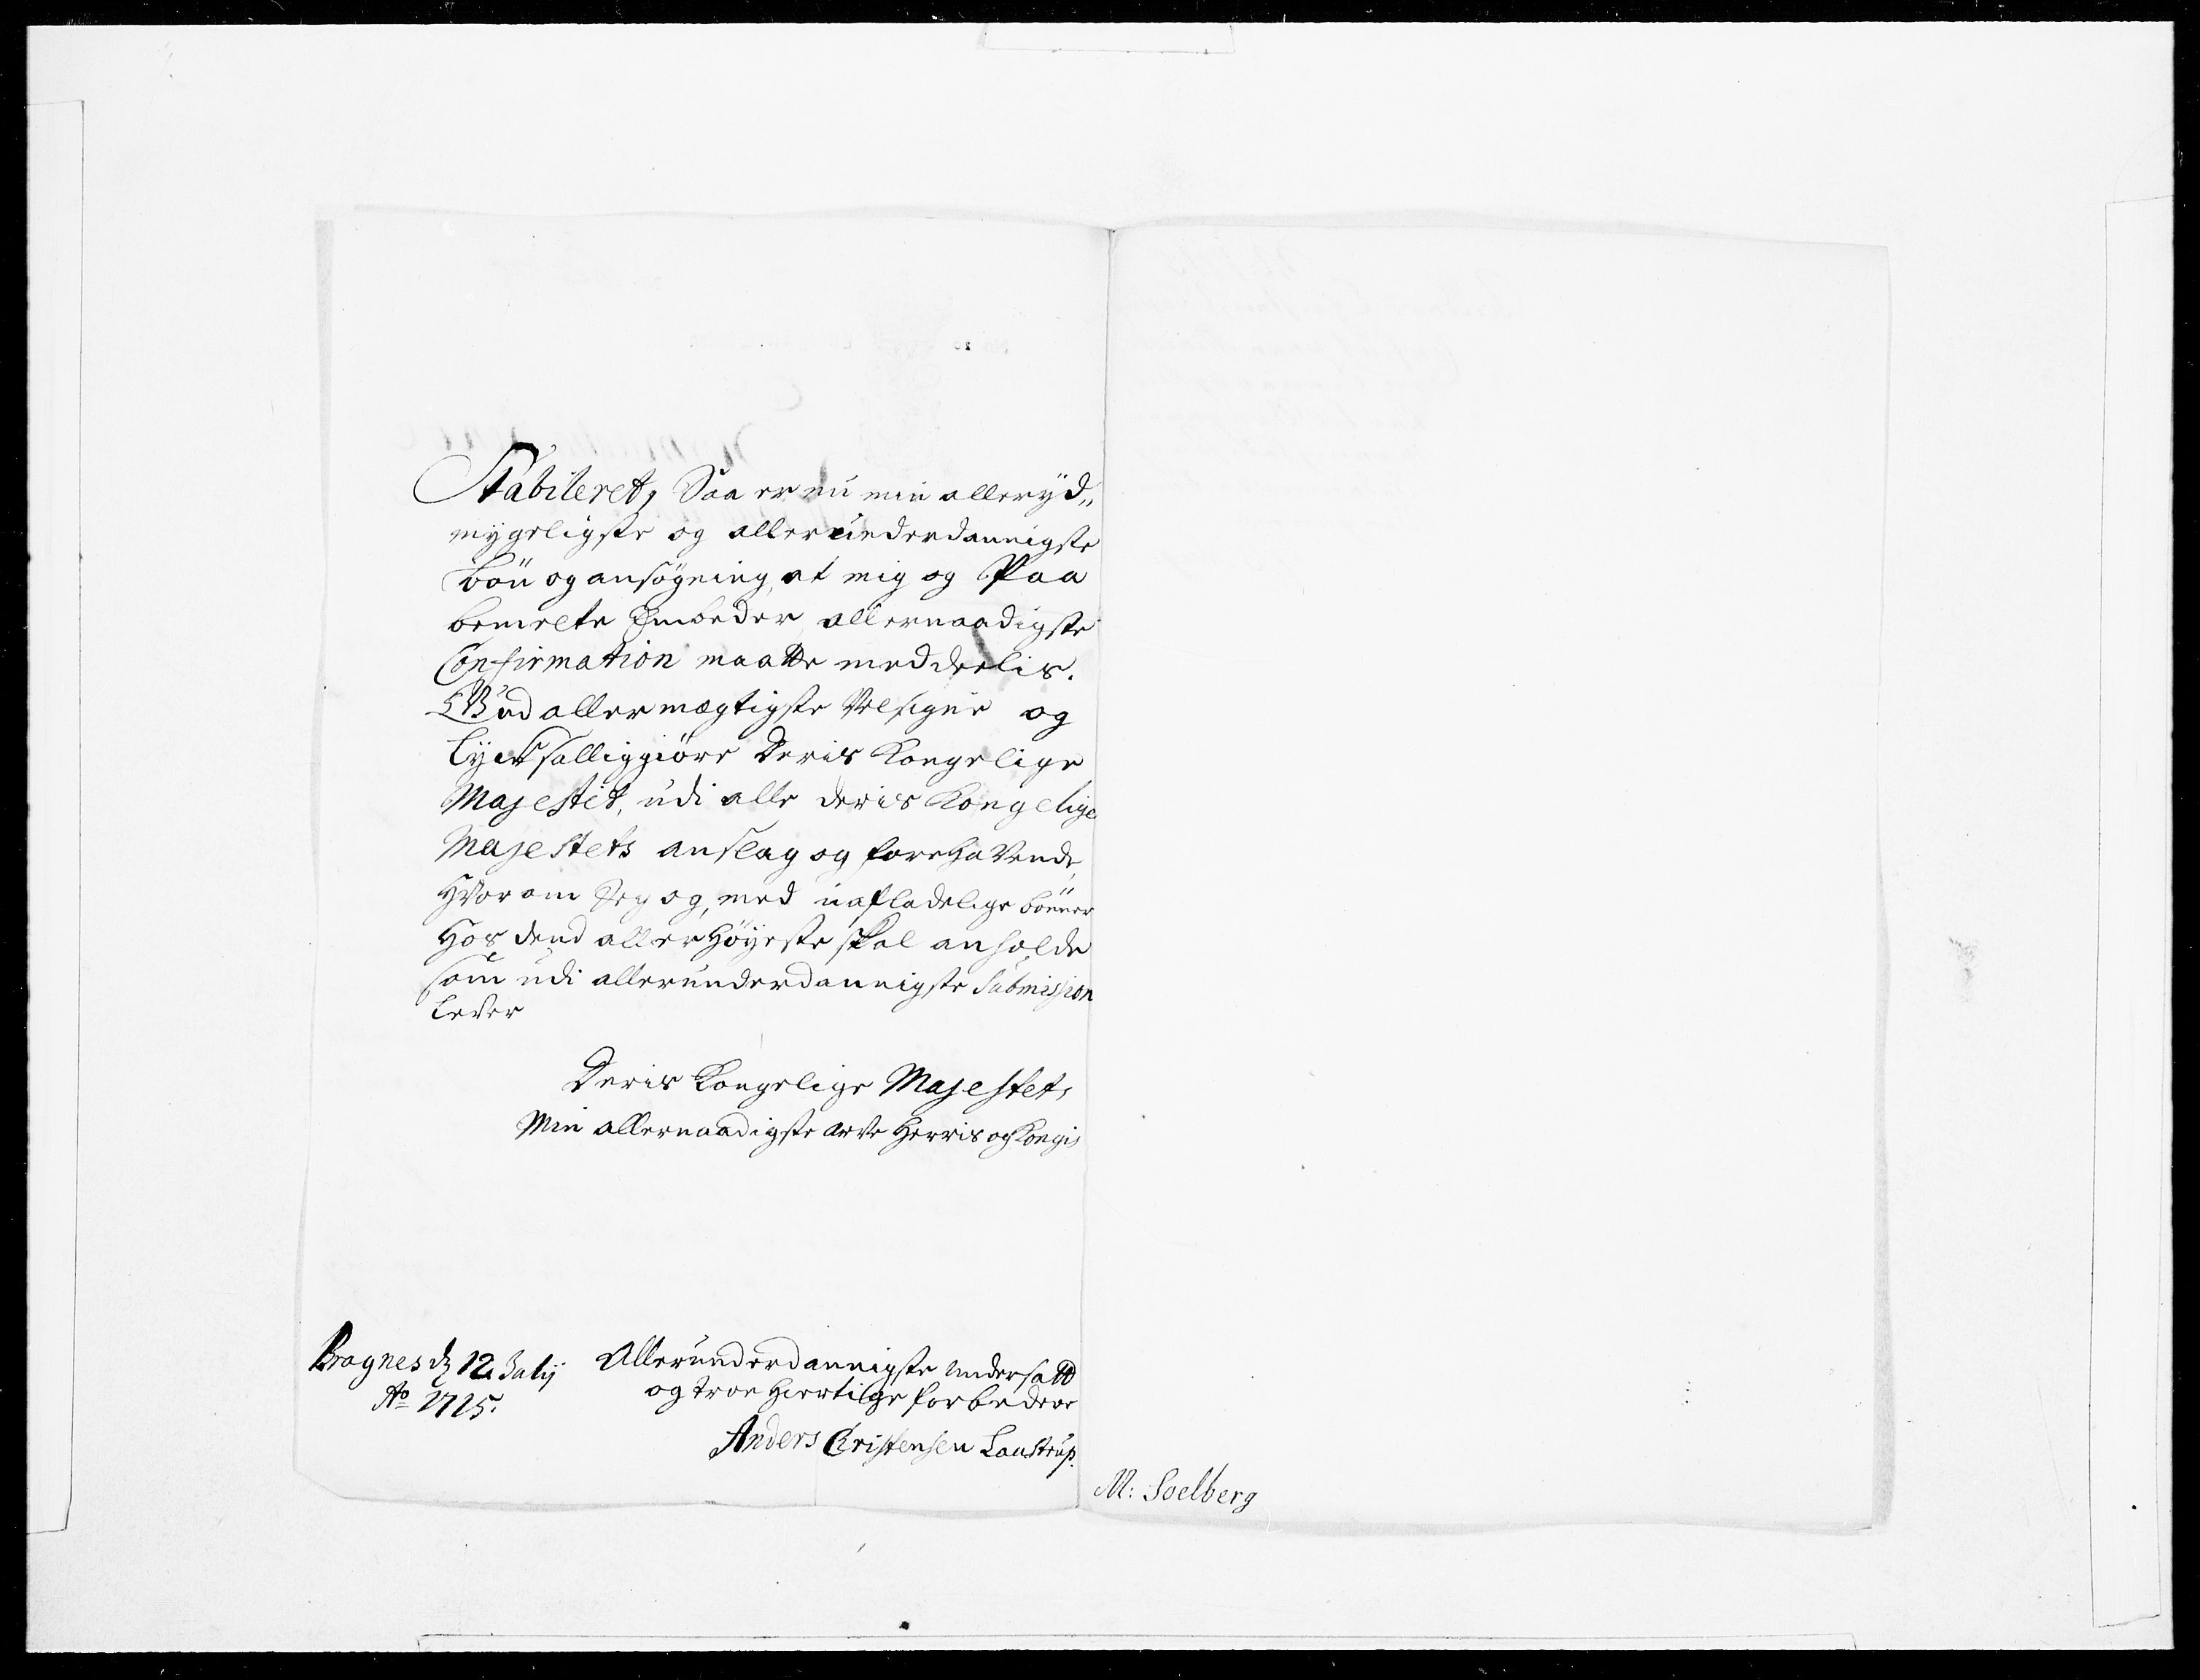 Stabileret, Saa er nu min alleryd„
mygeligste og allerunderdannigste
bön og ansögning, at mig og Paa
bemelte Embeder allernaadigste
Confirmation maatte meddeelis.
Gud allermægtigste Velsigne og
lycksalliggiöre Deris Kongelige
Majestet, udi alle deris Kongelige
Majestets anslag og forehavende,
Hvorom Jeg og, med uafladelige bönner
Hos dend allerhöyeste skal anholde
som udi allerunderdannigste Submission
lever
Deris Kongelige Majestets
Min allernaadigste arve Herris og Kongis
Bragnes dz 12. Julij
Ao 1715.
Allerunderdannigste undersatt
og troe hiertilige forbedere
Anders Christensen Laustrup.
M: Soelberg